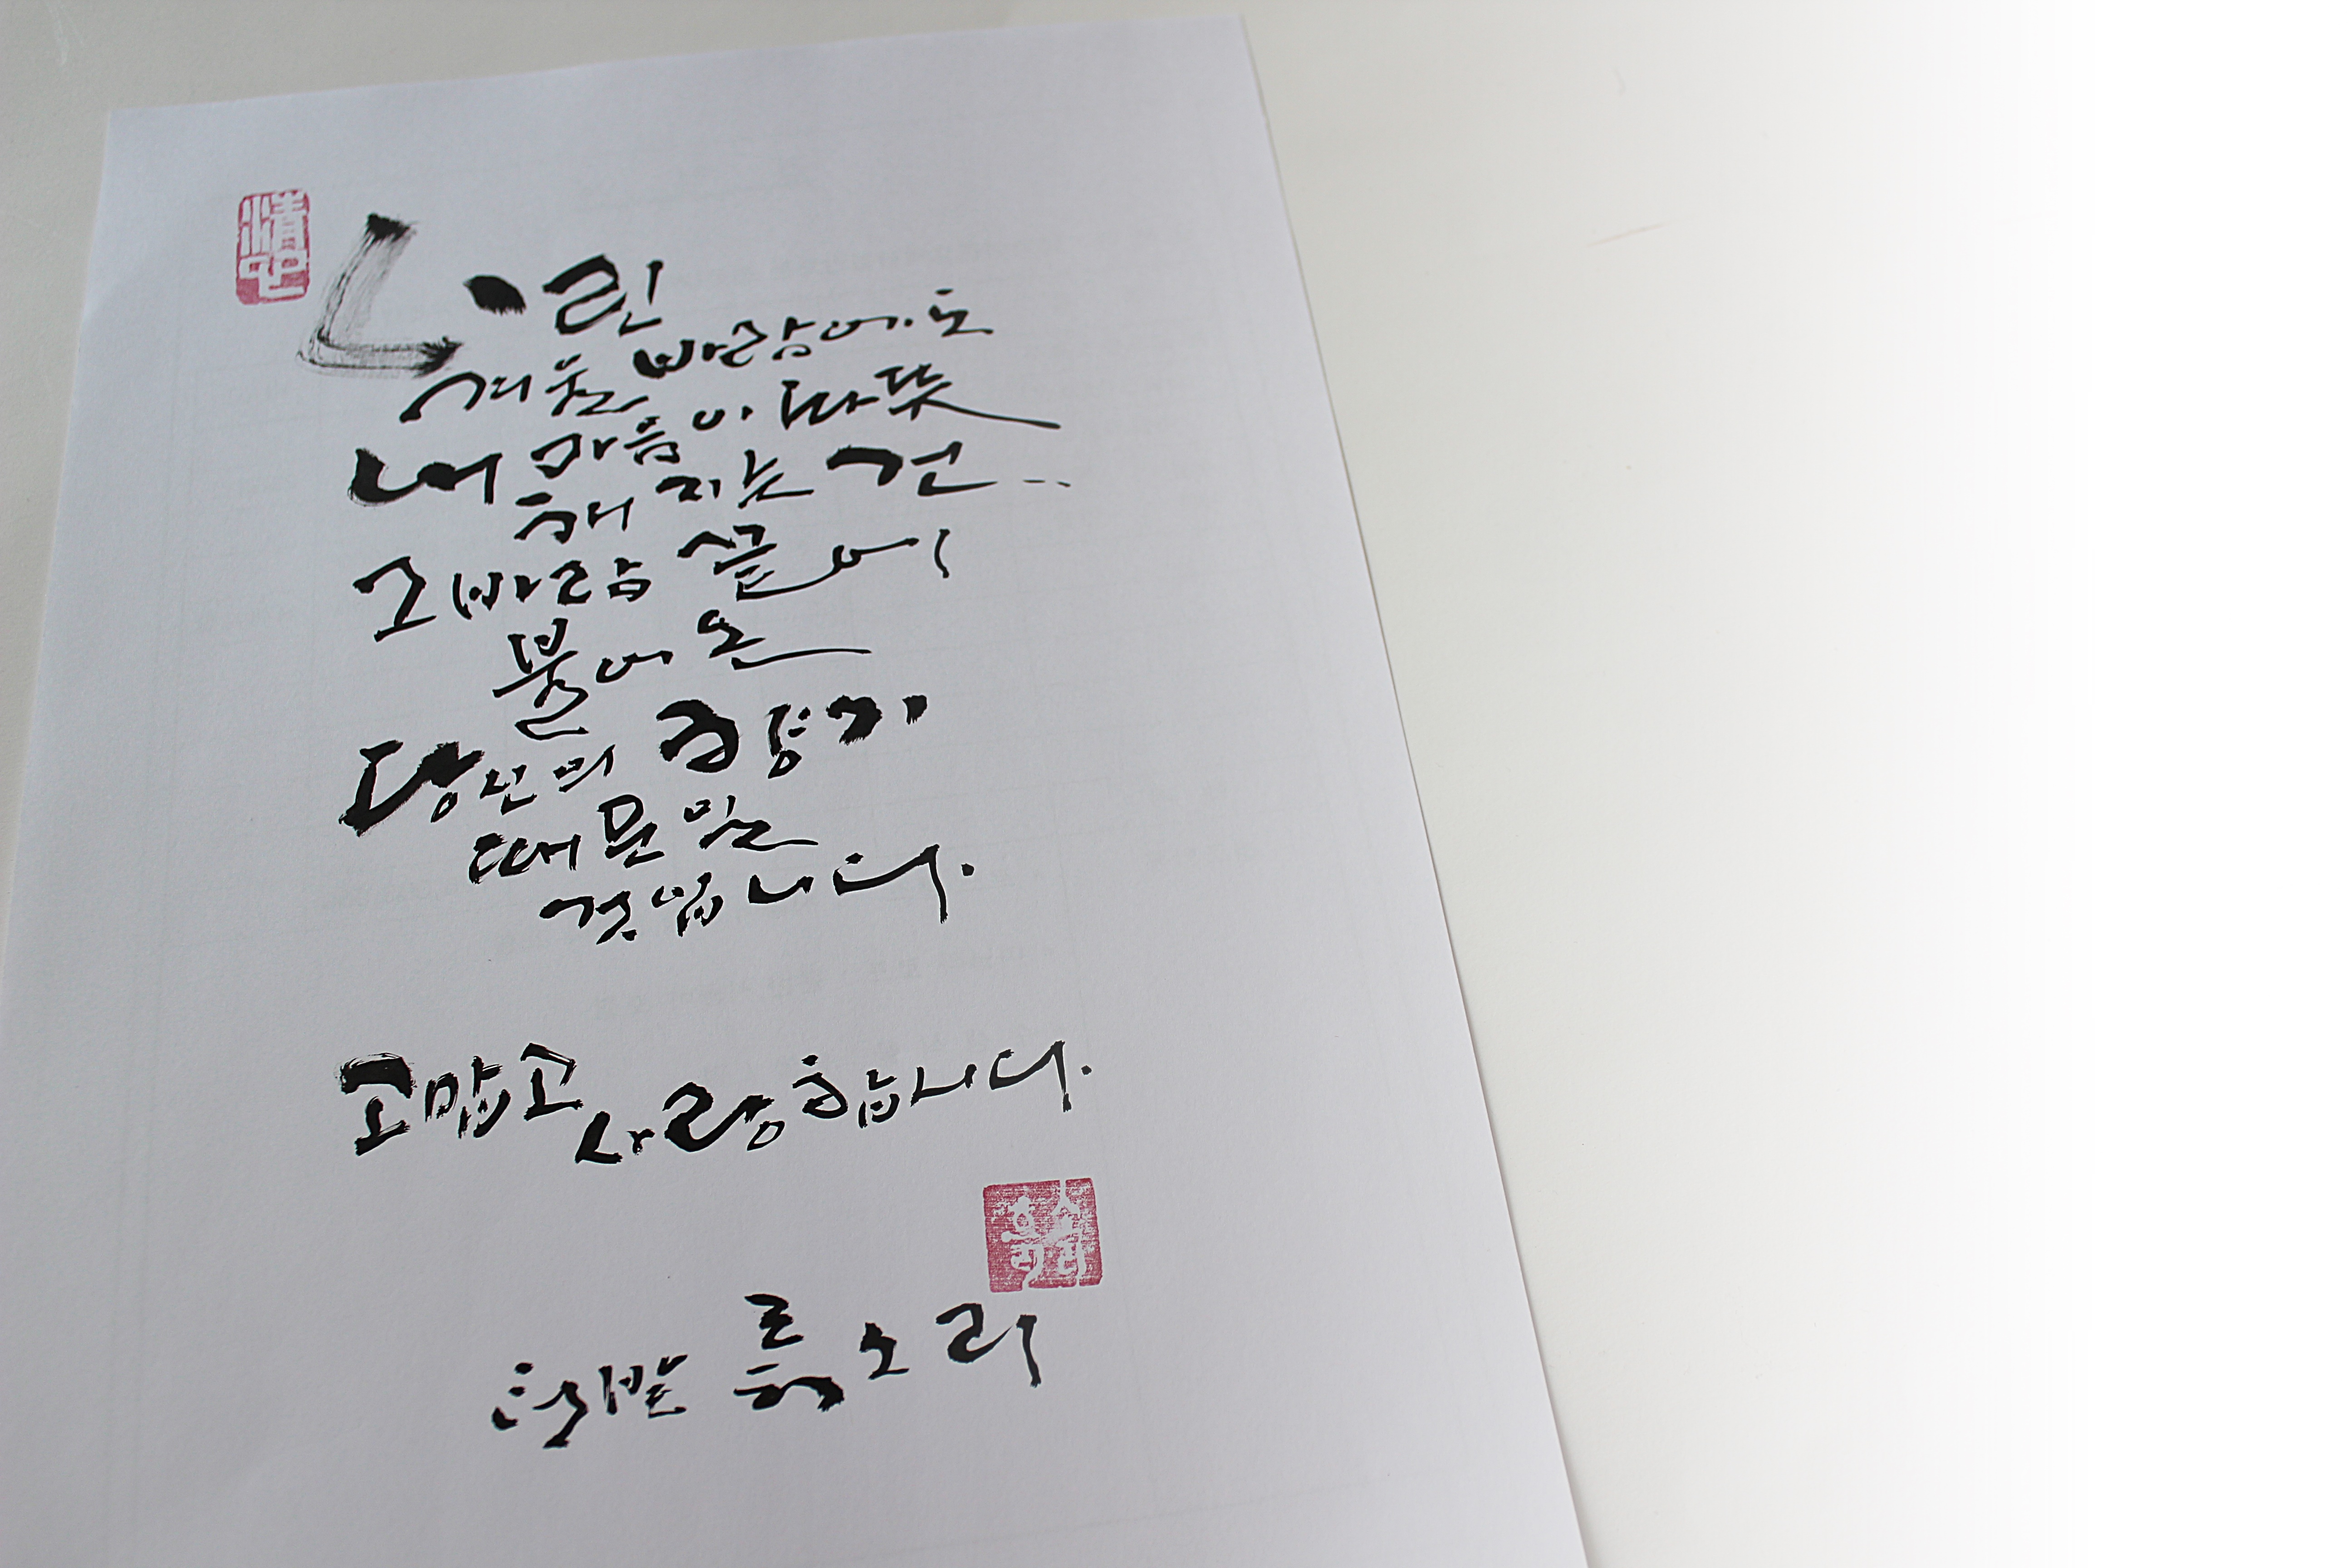 시린
겨울 바람에도
내 마음이 따뜻
해 지는 건..
그 바람 끝에
불어 온
당신의 향기
때문일
것입니다.
고맙고 사랑합니다.
소리